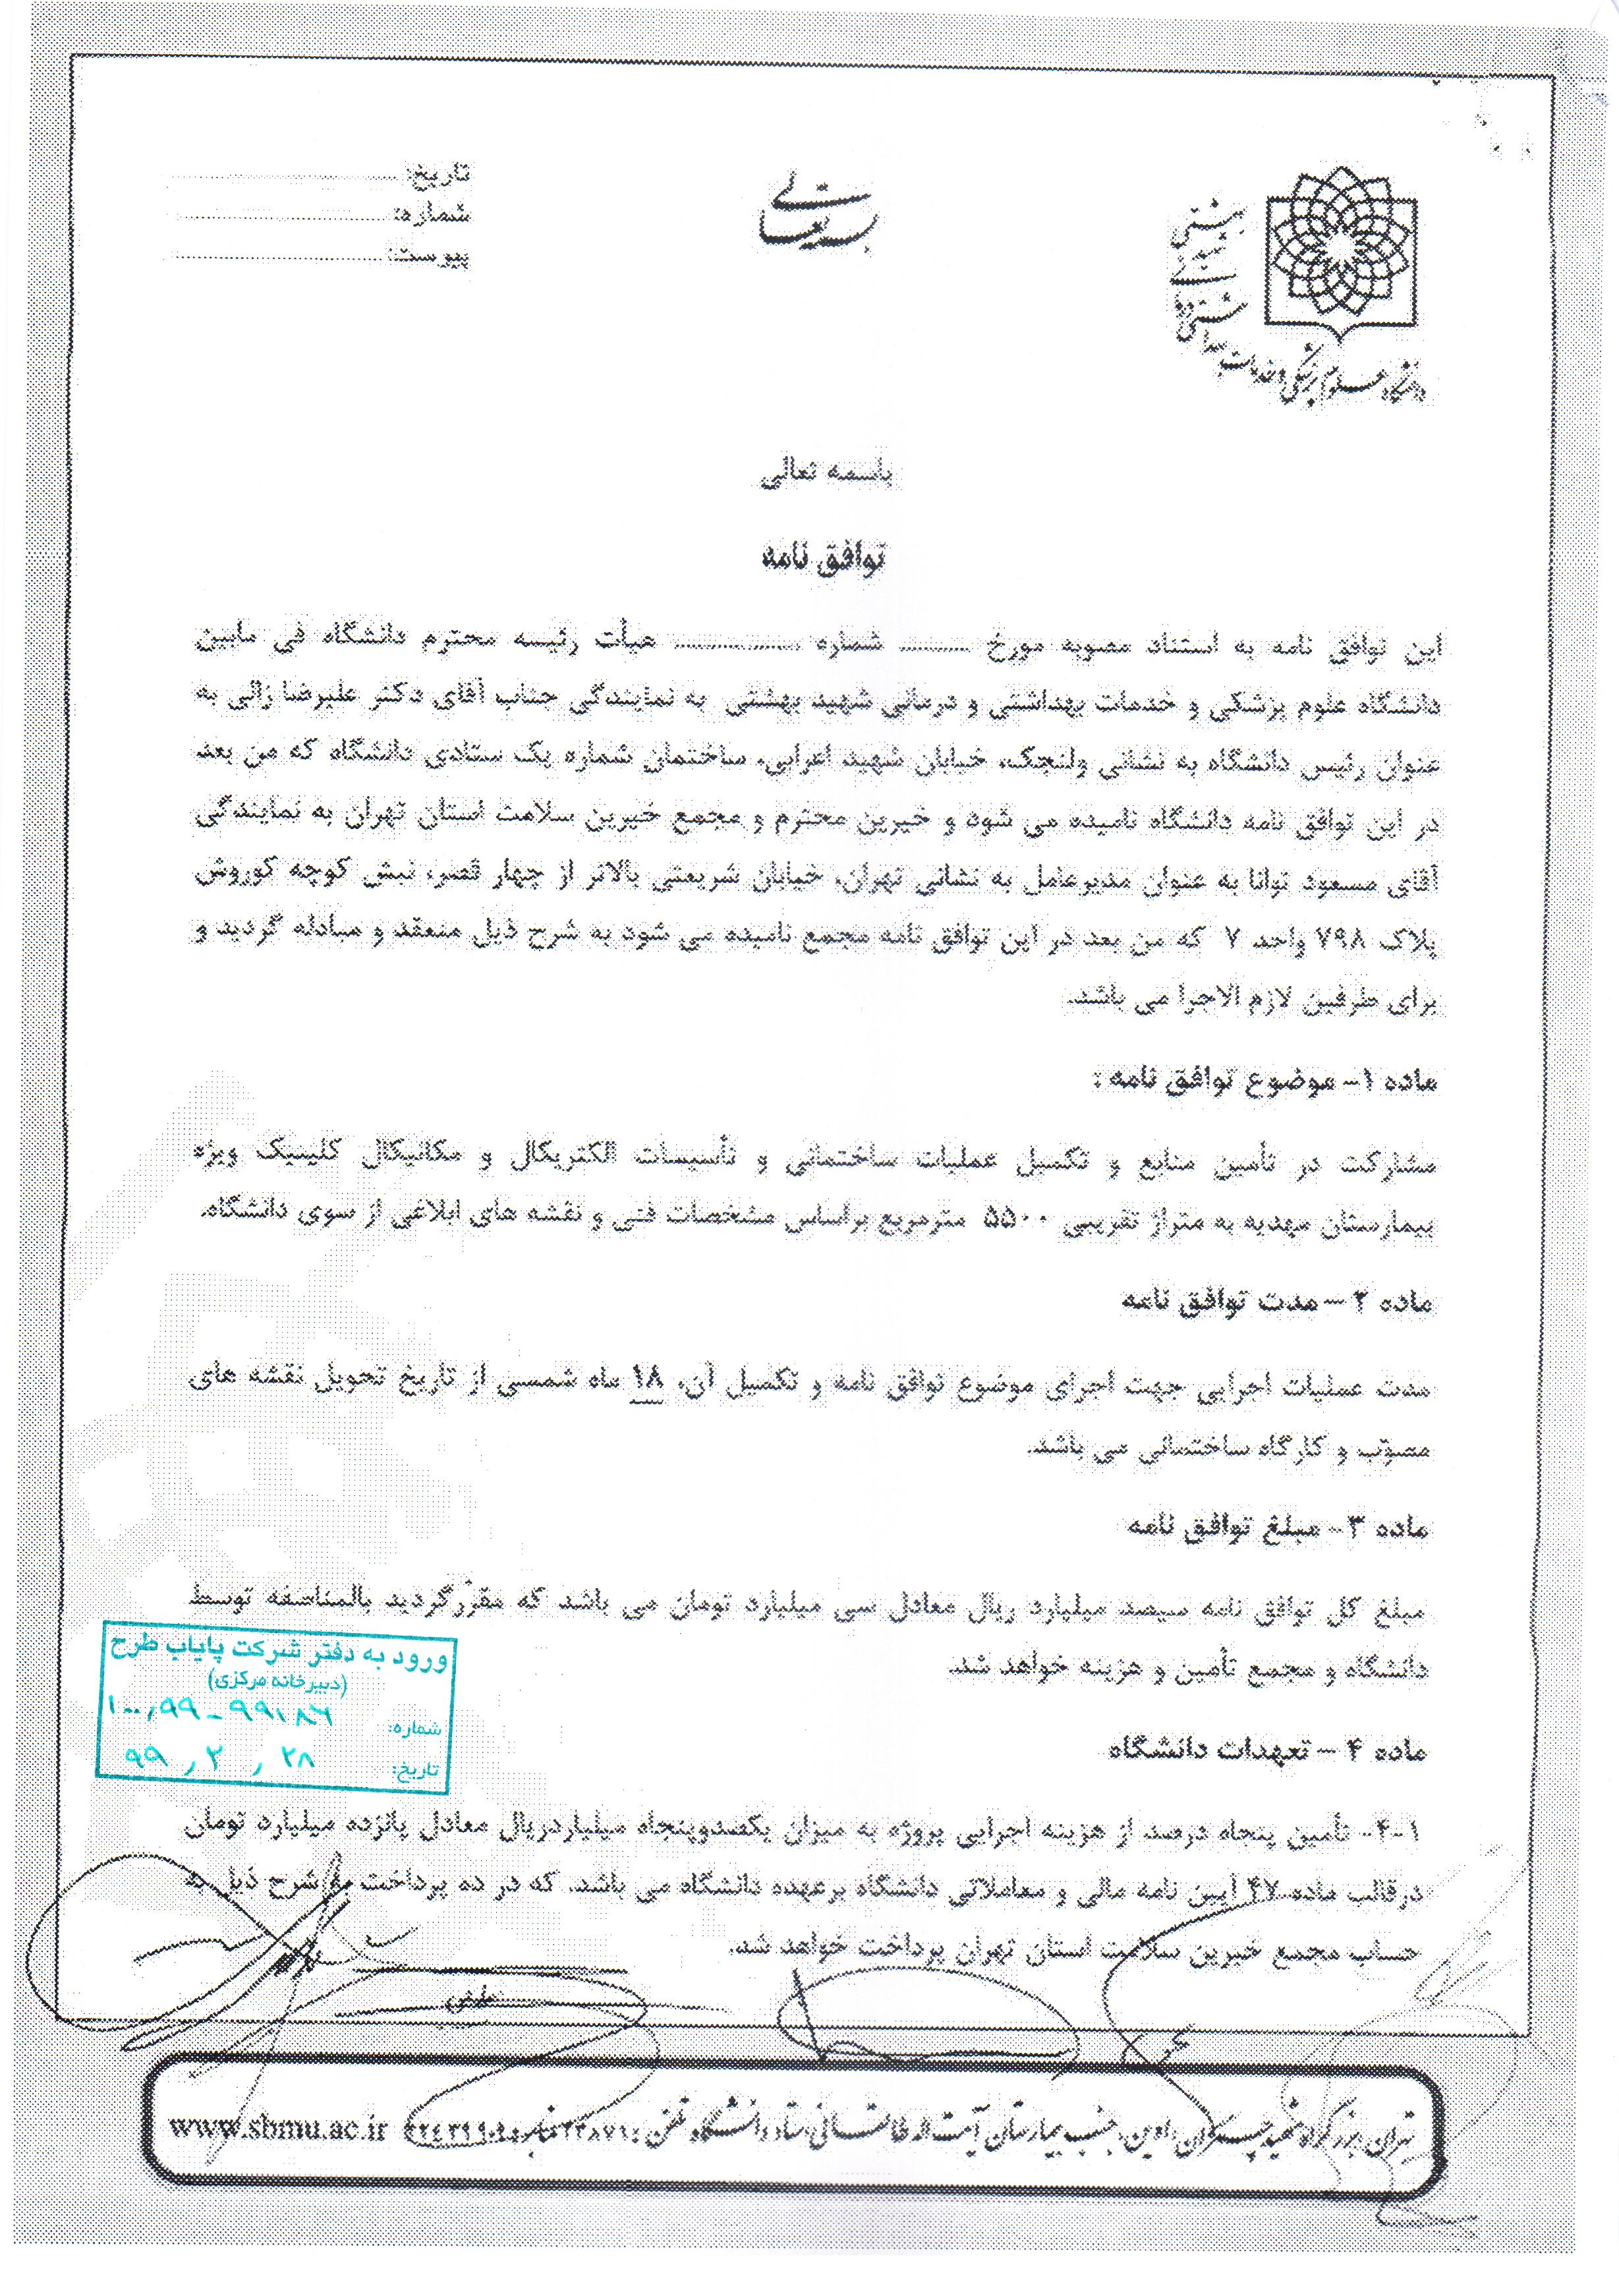 تاریخ:
شماره:
پیوست:
بسمه تعالی
دانشگاه علوم پزشکی و خدمات بهداشتی درمانی شهید بهشتی
باسمه تعالی
توافق نامه
این توافق نامه به استناد مصوبه مورخ ........... شماره .................. هیأت رئیسه محترم دانشگاه فی مابین
دانشگاه علوم پزشکی و خدمات بهداشتی و درمانی شهید بهشتی به نمایندگی جناب آقای دکتر علیرضا زالی به
عنوان رئیس دانشگاه به نشانی ولنجک، خیابان شهید اعرابی، ساختمان شماره یک ستادی دانشگاه که من بعد
در این توافق نامه دانشگاه نامیده می شود و خیرین محترم و مجمع خیرین سلامت استان تهران به نمایندگی
آقای مسعود توانا به عنوان مدیرعامل به نشانی تهران، خیابان شریعتی بالاتر از چهار قصر، نبش کوچه کوروش
پلاک ۷۹۸ واحد ۷ که من بعد در این توافق نامه مجمع نامیده می شود به شرح ذیل منعقد و مبادله گردید و
برای طرفین لازم الاجرا می باشد.
ماده ۱- موضوع توافق نامه :
مشارکت در تأمین منابع و تکمیل عملیات ساختمانی و تأسیسات الکتریکال و مکانیکال کلینیک ویژه
بیمارستان مهدیه به متراژ تقریبی ۵۵۰۰ مترمربع براساس مشخصات فنی و نقشه های ابلاغی از سوی دانشگاه.
ماده ۲ – مدت توافق نامه
مدت عملیات اجرایی جهت اجرای موضوع توافق نامه و تکمیل آن، ۱۸ ماه شمسی از تاریخ تحویل نقشه های
مصوّب و کارگاه ساختمانی می باشد.
ماده ۳- مبلغ توافق نامه
مبلغ کل توافق نامه سیصد میلیارد ریال معادل سی میلیارد تومان می باشد که مقرّرگردید بالمناصفه توسط
دانشگاه و مجمع تأمین و هزینه خواهد شد.
ورود به دفتر شرکت پایاب طرح
(دبیرخانه مرکزی)
شماره: ۱۰۰,۹۹-۹۹۱۸۶
تاریخ: ۲۸ , ۲ , ۹۹
ماده ۴ – تعهدات دانشگاه
۴-۱- تأمین پنجاه درصد از هزینه اجرایی پروژه به میزان یکصدوپنجاه میلیاردریال معادل پانزده میلیارد تومان
درقالب ماده ۴۷ آیین نامه مالی و معاملاتی دانشگاه برعهده دانشگاه می باشد. که در ده پرداخت به شرح ذیل به
حساب مجمع خیرین سلامت استان تهران پرداخت خواهد شد.
تهران، بزرگراه شهید چمران، اوین، جنب بیمارستان آیت اله طالقانی، ستاد دانشگاه تلفن : ۲۳۸۷۱ www.sbmu.ac.ir